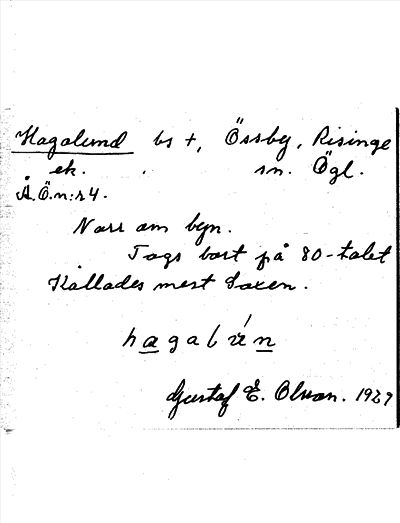 Hagalund bs +, Össby, Risinge
ek. sn. Ögl.
Å.Ö.n:r 4.
Norr om byn.
Togs bort på 80-talet
Kallades mest Saxen.
Gustaf E. Olson. 1929